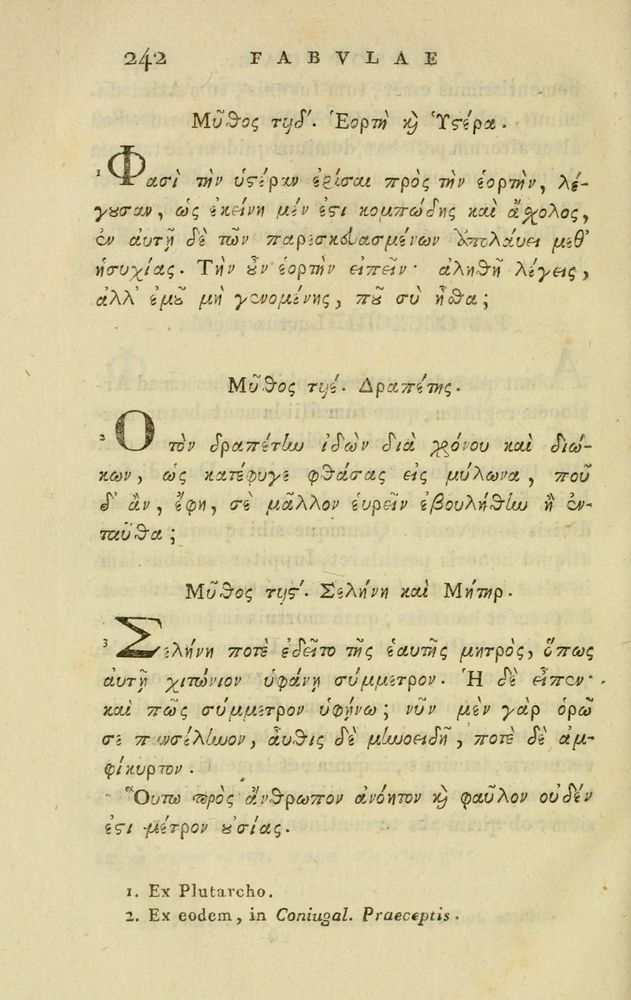 242 FABVLAE
Μῦθος τιδʹ. Ἑορτὴ ϗ Ὑϛέρα.
¹ Φασὶ τὴν ὑϛέραν ἐρίσαι πρὸς τὴν ἑορτὴν, λέ-
γουσαν, ὡς ἐκείνη μέν ἐϛι κομπώδης καὶ ἄχολος,
ἐν αυτῇ δὲ τῶν παρεσκευασμένων ἀπολάυει μεθ'
ἡσυχίας. Τὴν οὖν ἑορτὴν ειπεῖν· αληθῆ λέγεις,
αλλ' ἐμοῦ μὴ γενομένης, ποῦ σὺ ἦθα;
Μῦθος τιέ. Δραπέτης.
² Ὁ τὸν δραπέτην ἰδὼν διὰ χρόνου καὶ διώ-
κων, ὡς κατέφυγε φθάσας εἰς μύλωνα, ποῦ
δ' ἂν, ἔφη, σὲ μᾶλλον ἑυρεῖν ἐβουλήθην ἢ ἐν-
ταῦθα;
Μῦθος τιϛʹ. Σελήνη καὶ Μήτηρ.
³ Σελήνη ποτὲ ἐδεῖτο τῆς ἑαυτῆς μητρὸς, ὅπως
αυτῇ χιτώνιον ὑφάνῃ σύμμετρον. Ἡ δὲ εἶπεν·
καὶ πῶς σύμμετρον ὑφήνω; νῦν μὲν γὰρ ὁρῶ
σε πανσέληνον, ἆυθις δὲ μηνοειδῆ, ποτὲ δὲ ἀμ-
φίκυρτον.
Ὅυτω πρὸς ἄνθρωπον ἀνόητον ϗ φαῦλον ουδέν
ἐϛι μέτρον ουσίας.
1. Ex Plutarcho.
2. Ex eodem, in Coniugal. Praeceptis.